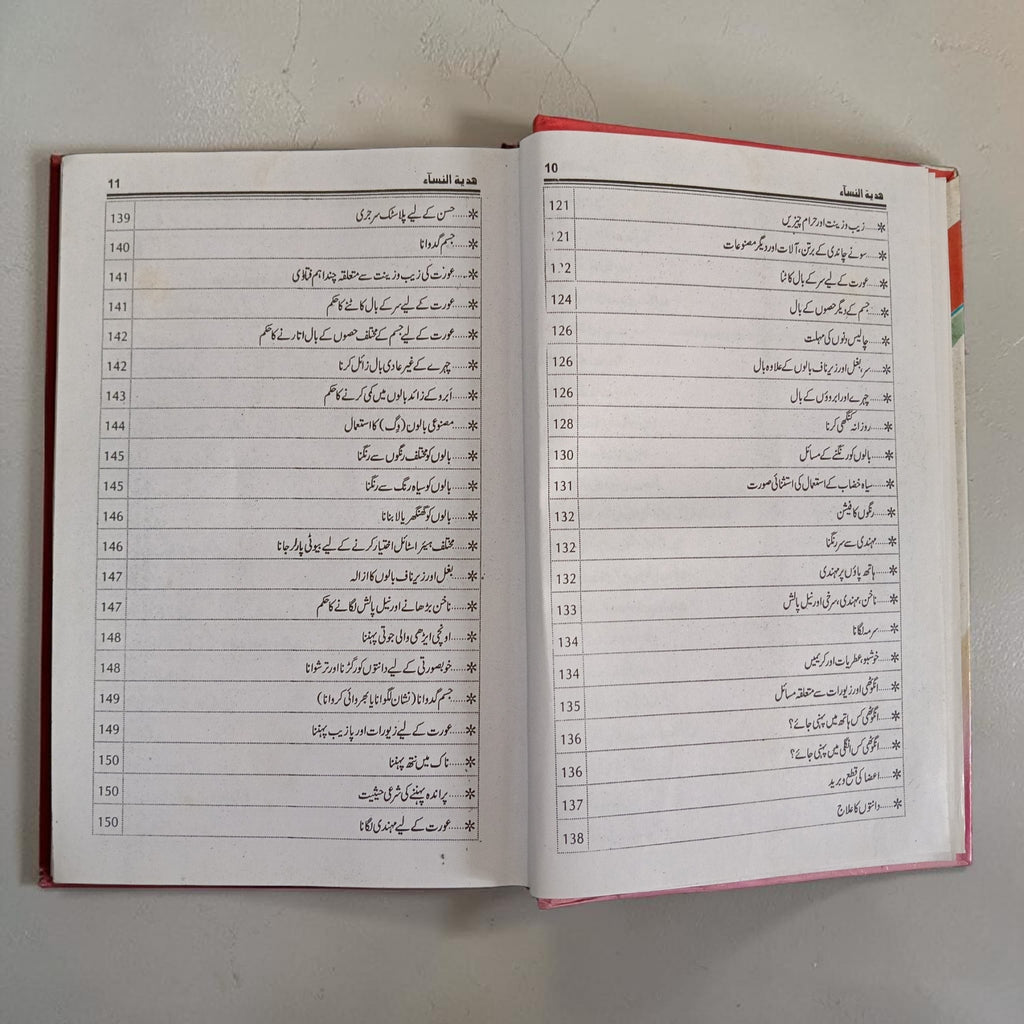 هدية النسآء 10
✻......زیب و زینت اور حرام چیزیں 121
✻......سونے چاندی کے برتن، آلات اور دیگر مصنوعات 121
✻......عورت کے لیے سر کے بال کاٹنا 122
✻......جسم کے دیگر حصوں کے بال 124
✻......چالیس دنوں کی مہلت 126
✻......سر، بغل اور زیر ناف بالوں کے علاوہ بال 126
✻......چہرے اور ابروؤں کے بال 126
✻......روزانہ کنگھی کرنا 128
✻......بالوں کو رنگنے کے مسائل 130
✻......سیاہ خضاب کے استعمال کی استثنائی صورت 131
✻......رنگوں کا فیشن 132
✻......مہندی سے سر رنگنا 132
✻......ہاتھ پاؤں پر مہندی 132
✻......ناخن، مہندی، سرخی اور نیل پالش 133
✻......سرمہ لگانا 134
✻......خوشبو، عطریات اور کریمیں 134
✻......انگوٹھی اور زیورات سے متعلقہ مسائل 135
✻......انگوٹھی کس ہاتھ میں پہنی جائے؟ 136
✻......انگوٹھی کس انگلی میں پہنی جائے؟ 136
✻......اعضا کی قطع و برید 137
✻......دانتوں کا علاج 138
هدية النسآء 11
✻......حسن کے لیے پلاسٹک سرجری 139
✻......جسم گدوانا 140
✻......عورت کی زیب و زینت سے متعلقہ چند اہم فتاوٰی 141
✻......عورت کے لیے سر کے بال کاٹنے کا حکم 141
✻......عورت کے لیے جسم کے مختلف حصوں کے بال اتارنے کا حکم 142
✻......چہرے کے غیر عادی بال زائل کرنا 142
✻......اَبرو کے زائد بالوں میں کمی کرنے کا حکم 143
✻......مصنوعی بالوں (وِگ) کا استعمال 144
✻......بالوں کو مختلف رنگوں سے رنگنا 145
✻......بالوں کو سیاہ رنگ سے رنگنا 145
✻......بالوں کو گھنگھریالا بنانا 146
✻......مختلف ہیئر اسٹائل اختیار کرنے کے لیے بیوٹی پارلر جانا 146
✻......بغل اور زیر ناف بالوں کا ازالہ 147
✻......ناخن بڑھانے اور نیل پالش لگانے کا حکم 147
✻......اونچی ایڑھی والی جوتی پہننا 148
✻......خوبصورتی کے لیے دانتوں کو رگڑنا اور ترشوانا 148
✻......جسم گدوانا (نشان لگوانا یا بھروائی کروانا) 149
✻......عورت کے لیے زیورات اور پازیب پہننا 149
✻......ناک میں نتھ پہننا 150
✻......پراندہ پہننے کی شرعی حیثیت 150
✻......عورت کے لیے مہندی لگانا 150